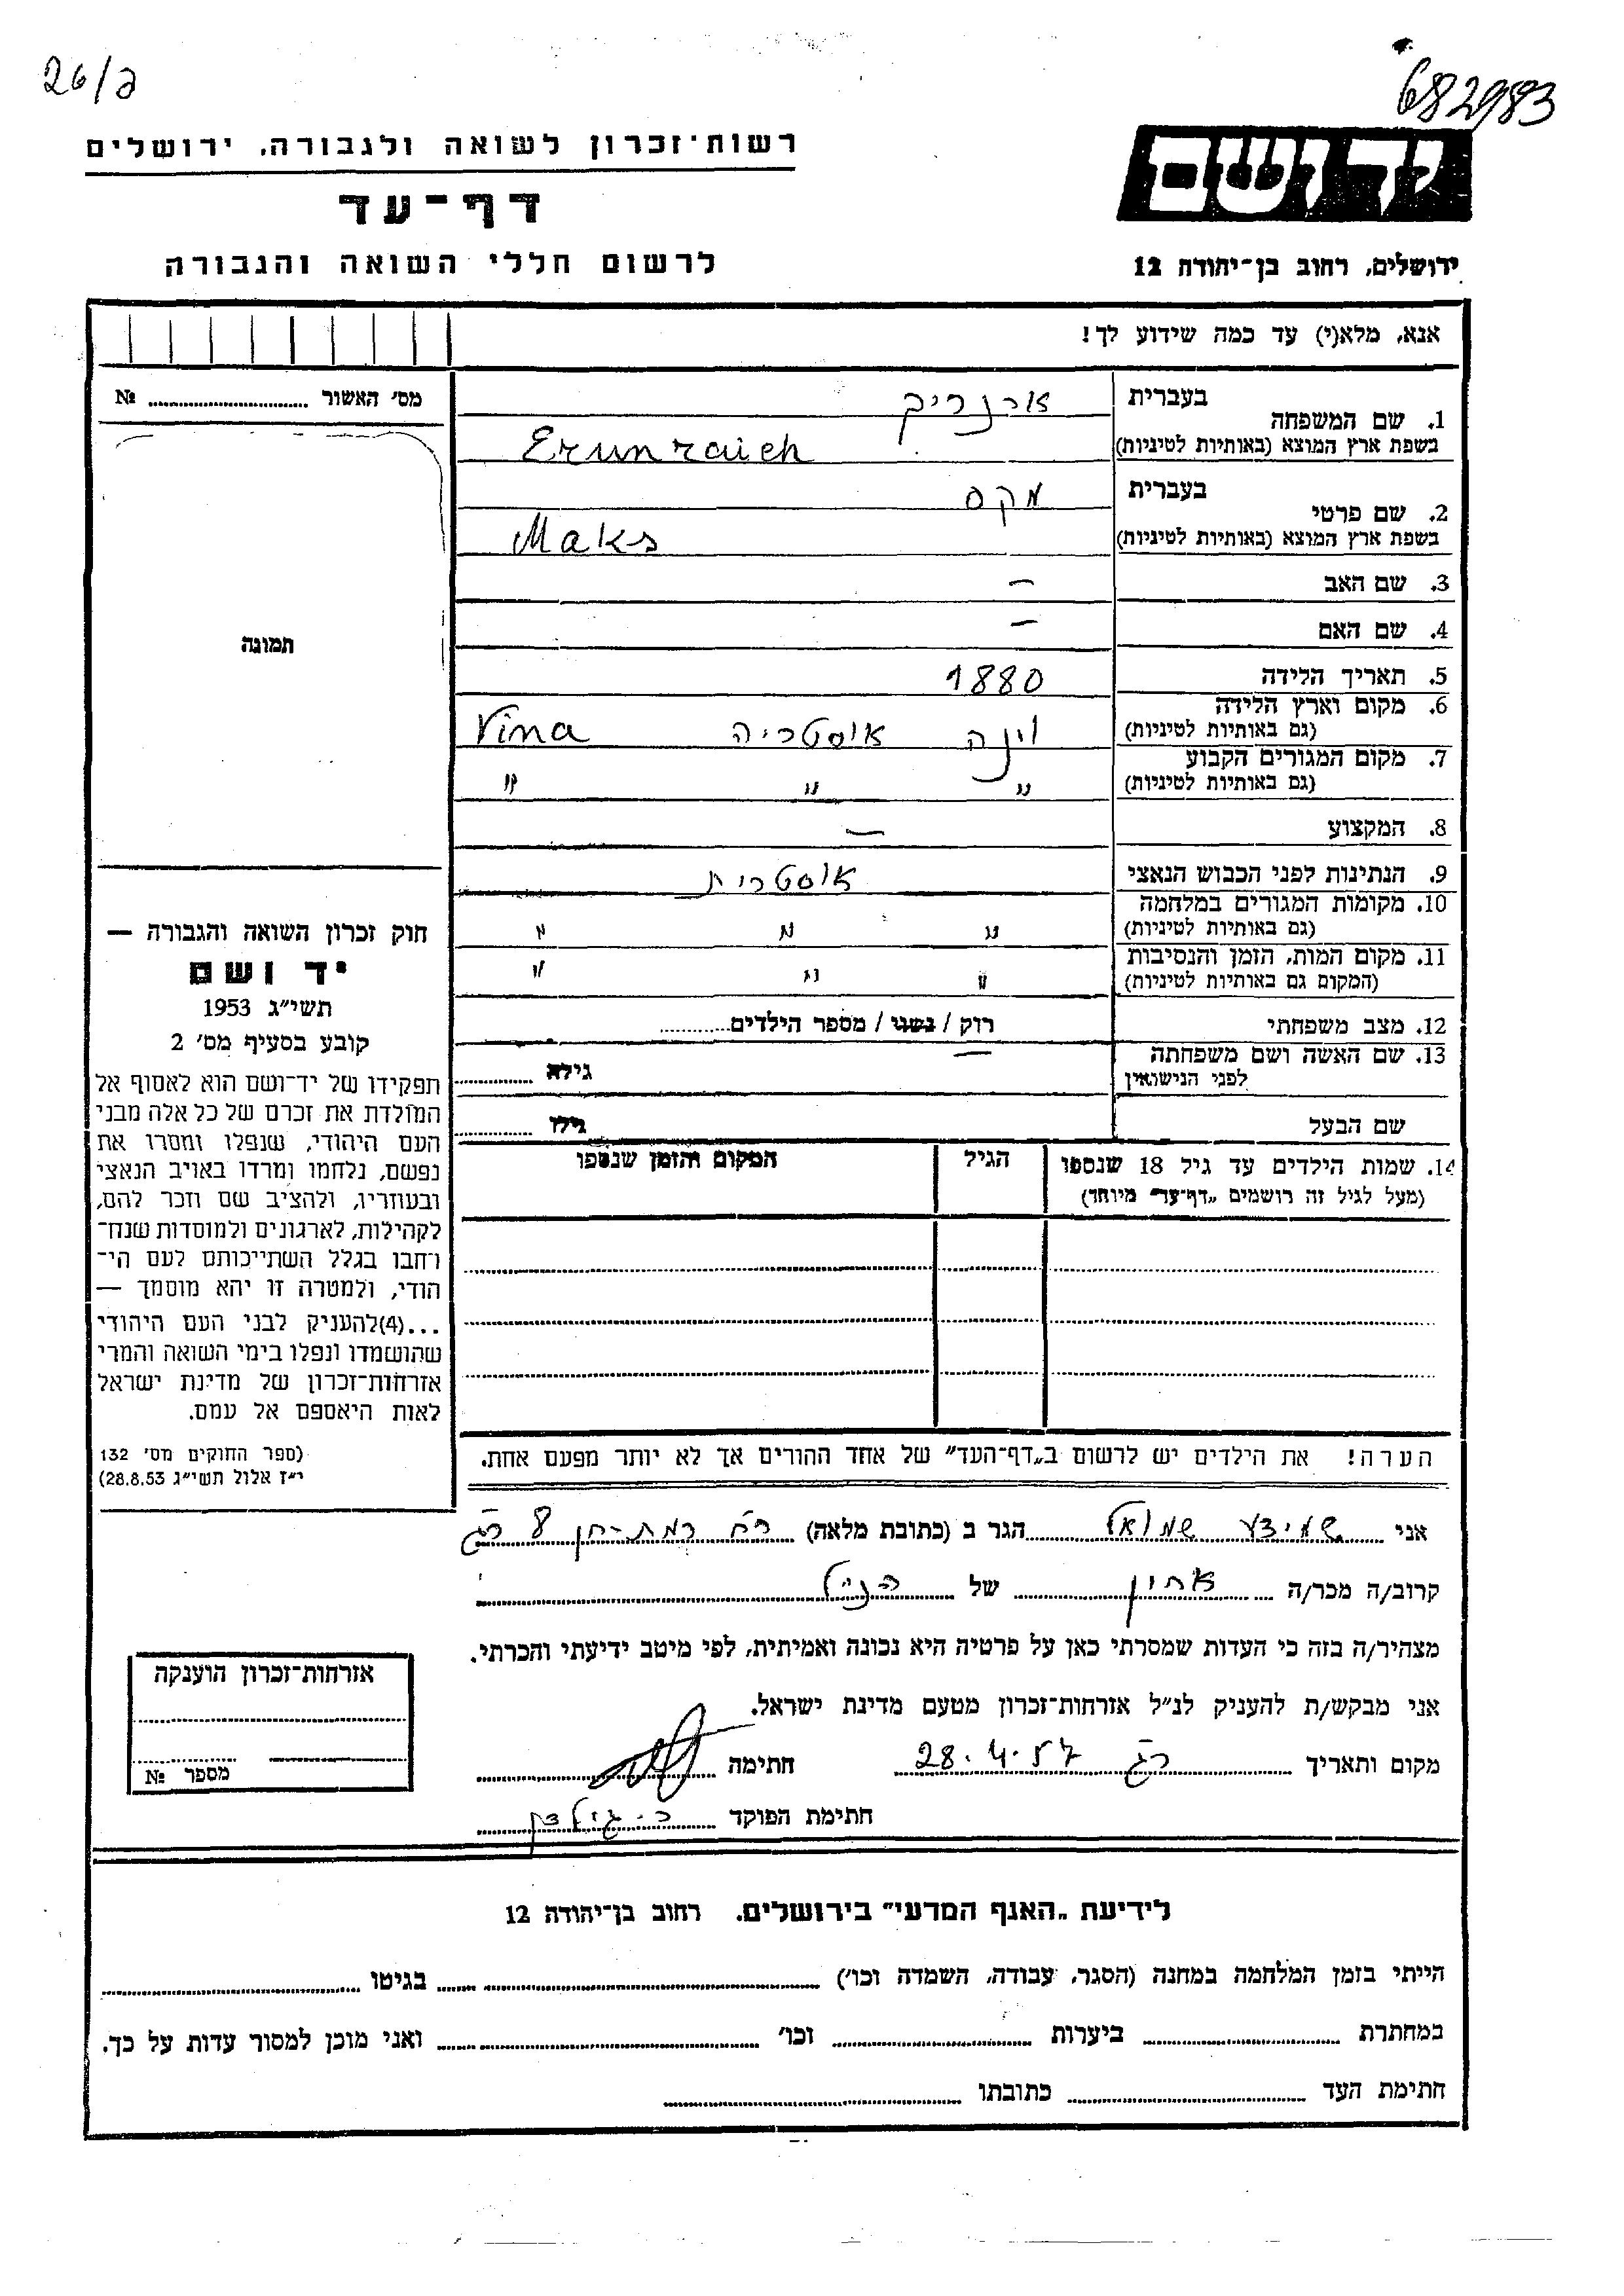 26/ב
682983
רשות-זכרון לשואה ולגבורה, ירושלים
דף-עד
לרשום חללי השואה והגבורה
יד ושם
ירושלים, רחוב בן-יהודה 12
אנא, מלא(י) עד כמה שידוע לך!
מס' האשור № 
1. שם המשפחה
בעברית
בשפת ארץ המוצא (באותיות לטיניות)
Erunraich
2. שם פרטי
בעברית מקס
בשפת ארץ המוצא (באותיות לטיניות) Maks
3. שם האב –
4. שם האם –
5. תאריך הלידה 1880
6. מקום וארץ הלידה
(גם באותיות לטיניות) וינה אוסטריה Vina
7. מקום המגורים הקבוע
(גם באותיות לטיניות) " " "
8. המקצוע –
9. הנתינות לפני הכבוש הנאצי אוסטרית
10. מקומות המגורים במלחמה
(גם באותיות לטיניות) " " "
11. מקום המות, הזמן והנסיבות
(המקום גם באותיות לטיניות) " " "
12. מצב משפחתי רוק / נשוי / מספר הילדים
13. שם האשה ושם משפחתה
לפני הנישואין – גילה
שם הבעל גילו
14. שמות הילדים עד גיל 18 שנספו
(מעל לגיל זה רושמים "דף-עד" מיוחד)
הגיל
המקום והזמן שנספו
הערה! את הילדים יש לרשום ב"דף-העד" של אחד ההורים אך לא יותר מפעם אחת.
תמונה
חוק זכרון השואה והגבורה —
יד ושם
תשי"ג 1953
קובע בסעיף מס' 2
תפקידו של יד-ושם הוא לאסוף אל
המולדת את זכרם של כל אלה מבני
העם היהודי, שנפלו ומסרו את
נפשם, נלחמו ומרדו באויב הנאצי
ובעוזריו, ולהציב שם וזכר להם,
לקהילות, לארגונים ולמוסדות שנח-
רחבו בגלל השתייכותם לעם הי-
הודי, ולמטרה זו יהא מוסמך —
...(4)להעניק לבני העם היהודי
שהושמדו ונפלו בימי השואה והמרי
אזרחות-זכרון של מדינת ישראל
לאות היאספם אל עמם.
(ספר החוקים מס' 132
י"ז אלול תשי"ג 28.8.53)
אני שמואל הגר ב (כתובת מלאה) רח רמת-חן 8 רג
קרוב/ה מכר/ה אחיין של הנ"ל
מצהיר/ה בזה כי העדות שמסרתי כאן על פרטיה היא נכונה ואמיתית, לפי מיטב ידיעתי והכרתי.
אני מבקש/ת להעניק לנ"ל אזרחות-זכרון מטעם מדינת ישראל.
מקום ותאריך רג 28.4.57 חתימה
חתימת הפוקד
אזרחות-זכרון הוענקה
מספר №
לידיעת "האגף המדעי" בירושלים. רחוב בן-יהודה 12
הייתי בזמן המלחמה במחנה (הסגר, עבודה, השמדה וכו') בגיטו
במחתרת ביערות וכו' ואני מוכן למסור עדות על כך.
חתימת העד כתובתו